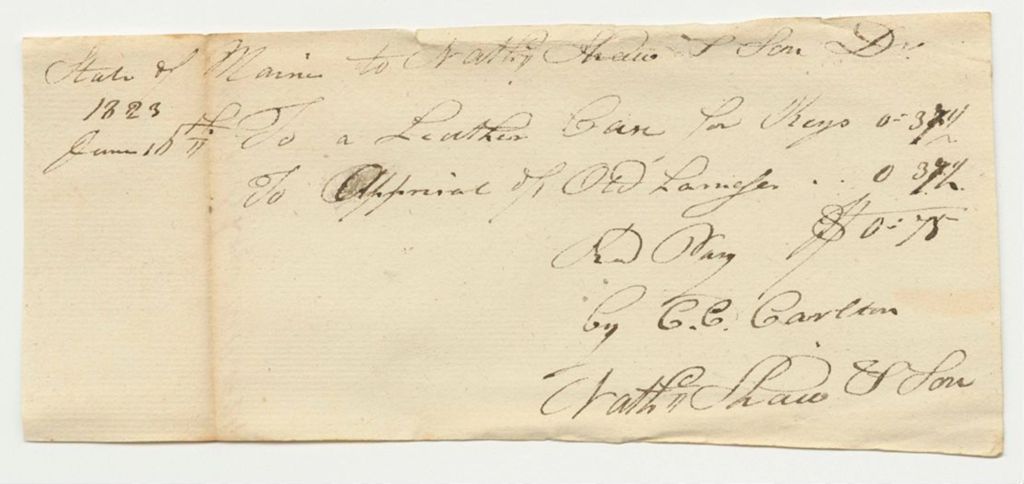 State of Maine to Nath'll Shaw & Son Dr.
1823
June 16th To a Leather Case for Keys 0-37½
To Apprial of Old .. 0 37½
$ 0-75
Recd Pay
by C.C. Carlton
Nath'll Shaw & Son